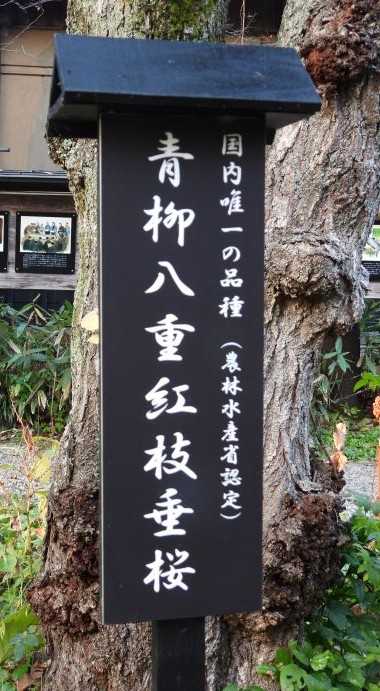 国内唯一の品種（農林水産省認定）
青柳八重紅枝垂桜